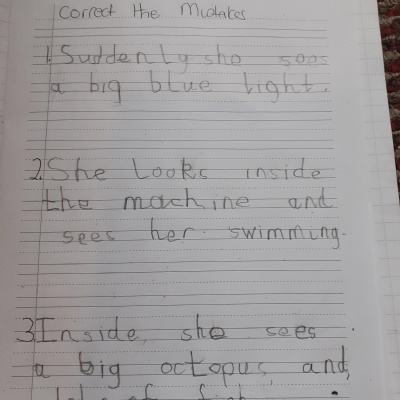 Correct the Mistakes
1. Suddenly she sees
a big blue light.
2. She Looks inside
the machine and
sees her swimming.
3 Inside, she sees
a big octopus and,
lots of fish